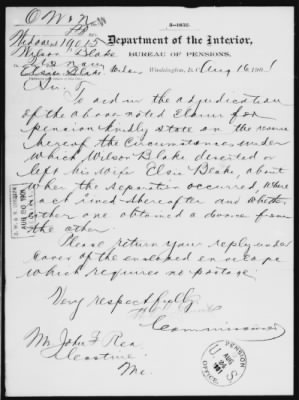 3-1852.
Department of the Interior,
BUREAU OF PENSIONS,
Wilson Blake
U S Navy
Elsie Blake Washington, D.C. Aug 16, 1901
Sir:
To aid in the adjudication
of the above noted Claim for
pension kindly state on the reverse
hereof the Circumstances under
which Wilson Blake deserted or
left his wife Elsie Blake, about
when the separation occurred, where
each lived thereafter and whether
either one obtained a divorce from
the other.
Please return your reply under
cover of the enclosed envelope
which requires no postage.
Very respectfully
Commissioner
Mr. John F. Rea
Me.
PENSION
OFFICE
U S
AUG